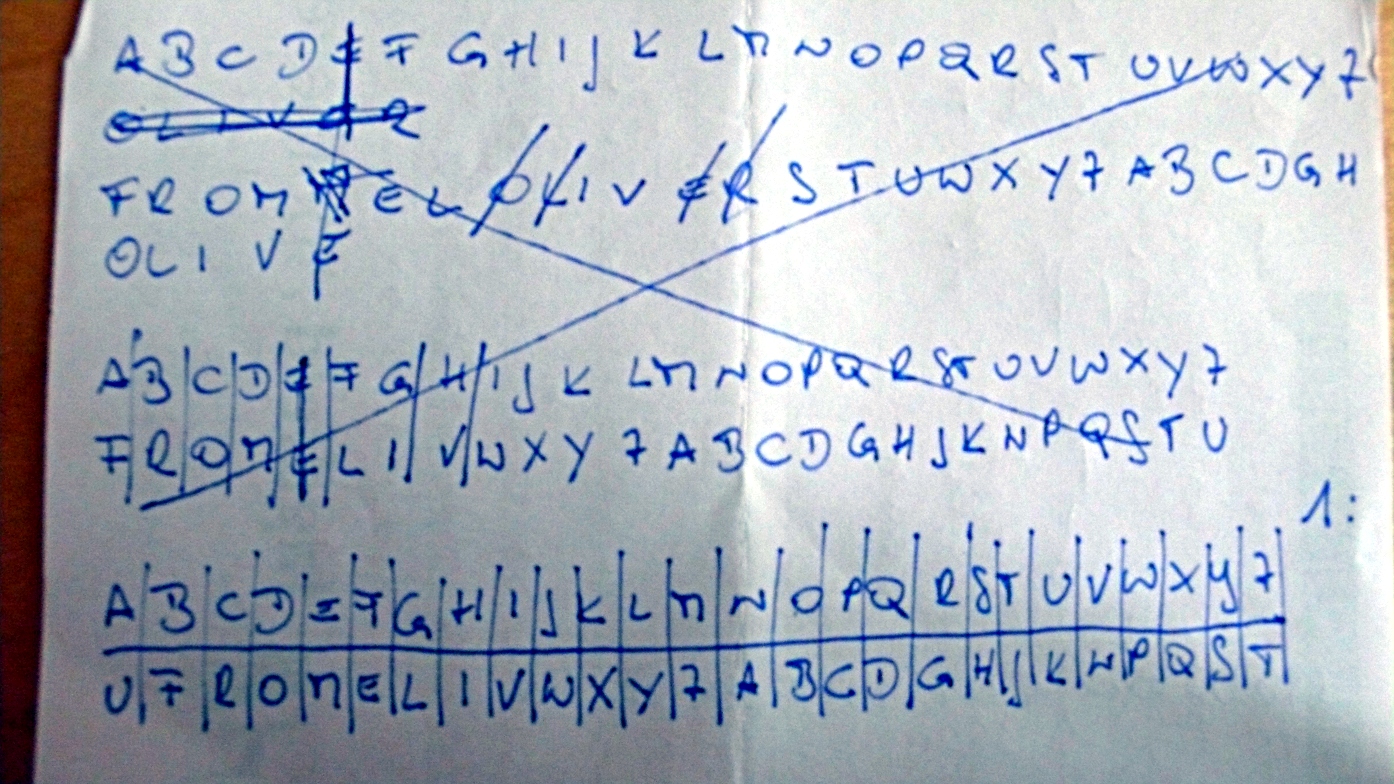 A B C D E F G H I J K L M N O P Q R S T U V W X Y Z
O L I V E R
F R O M E L O L I V E R S T U W X Y Z A B C D G H
O L I V E
A B C D E F G H I J K L M N O P Q R S T U V W X Y Z
F R O M E L I V W X Y Z A B C D G H J K N P Q S T U
1:
A B C D E F G H I J K L M N O P Q R S T U V W X Y Z
U F R O M E L I V W X Y Z A B C D G H J K N P Q S T